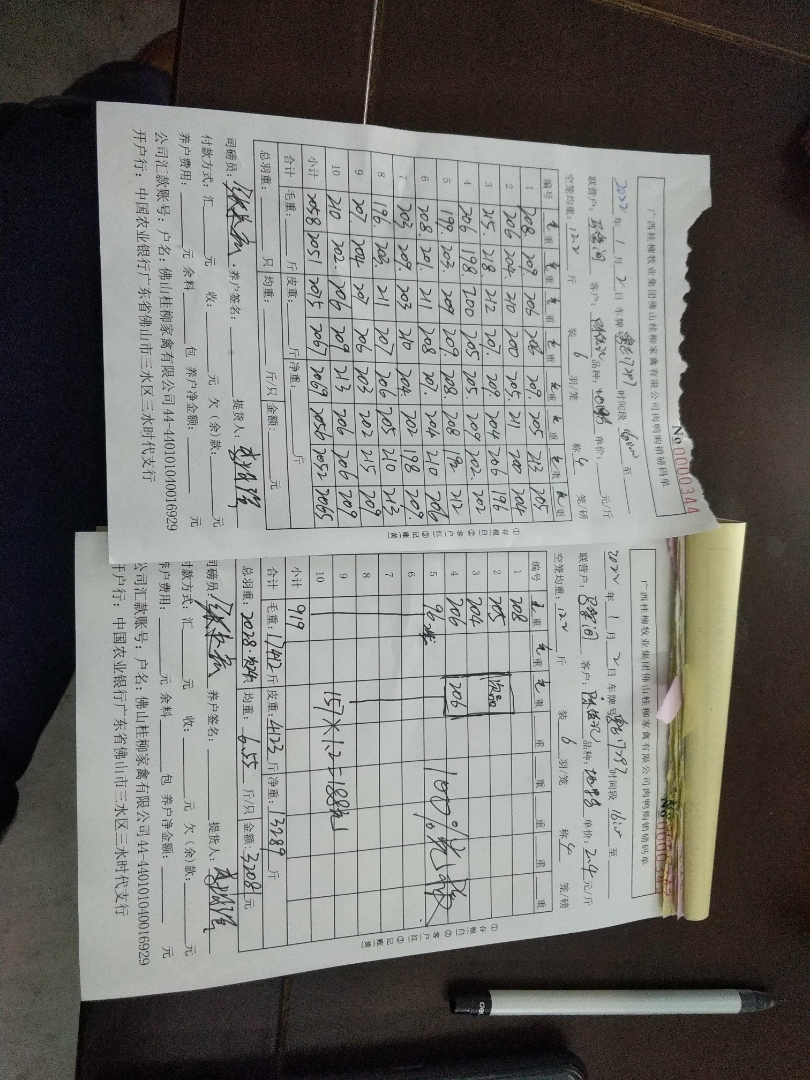 No 0000344
广西桂柳牧业集团佛山桂柳家禽有限公司肉鸭购销磅码单
2022 年 1 月 2 日 车牌 时间段 至
联营户: 客户: 品种: 单价: 元/斤
空笼均重: 12.2 斤 装 6 羽/笼 称 4 笼/磅
编号 毛重 毛重 毛重 毛重 毛重 毛重 毛重 毛重
1 208 209 206 206 209. 205 213 205
2 206 204. 210 200 205. 211 200 204
3 215. 218 212 207. 209 204 206 196
4 206 198 200 205 205. 209 202. 202
5 199 203. 209 209. 208 208 192 212
6 208 201. 211 208 207. 204 210 206
7 203 209. 203 210 204. 202 198 209.
8 196. 203. 211 207 206 205 210 213
9 207. 204 207 206 203 202 215 209
10 210 202. 206 209 213 206 206 209
小计 2058 2051 2075 2067 2069 2056 2052 2065
合计 毛重: 斤 皮重: 斤 净重: 斤
总羽重: 只 均重: 斤/只 金额: 元
司磅员: 养户签名: 提货人:
付款方式: 汇 元 收: 元 欠(余)款: 元
养户费用: 元 余料 包 养户净金额: 元
公司汇款账号: 户名: 佛山桂柳家禽有限公司 44-440101040016929
开户行: 中国农业银行广东省佛山市三水区三水时代支行
①存根(白) ②客户(红) ③记账(黄)
广西桂柳牧业集团佛山桂柳家禽有限公司肉鸭购销磅码单
2022 年 1 月 2 日 车牌号 时间段 至
联营户: 客户: 品种: 单价: 2.4 元/斤
空笼均重: 12.2 斤 装 6 羽/笼 称 4 笼/磅
编号 毛重 毛重 毛重 重 重 重 重 重
1 208
2 205 次品
3 204
4 206 206
5 96 100%
6
7
8
9
10 157×1.2=188元
小计 919
合计 毛重: 17412 斤 皮重: 4123 斤 净重: 13289 斤
总羽重: 2028 均重: 6.55 斤/只 金额: 32081 元
司磅员: 养户签名: 提货人:
付款方式: 汇 元 收 元 欠(余)款: 元
养户费用: 元 余料 包 养户净金额: 元
公司汇款账号: 户名: 佛山桂柳家禽有限公司 44-440101040016929
开户行: 中国农业银行广东省佛山市三水区三水时代支行
①存根(白) ②客户(红) ③记账(黄)